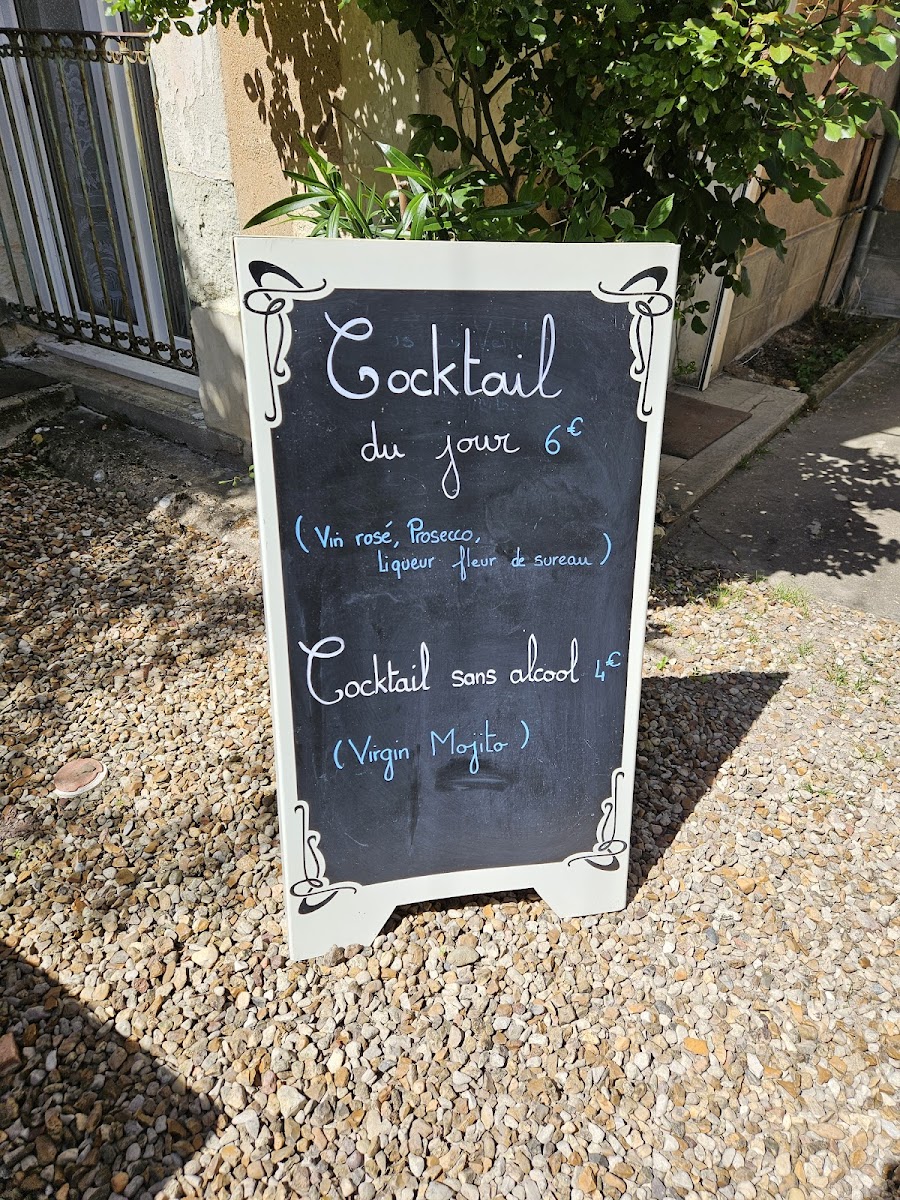 Cocktail
du jour 6€
(Vin rosé, Prosecco,
Liqueur fleur de sureau)
Cocktail sans alcool 4€
(Virgin Mojito)